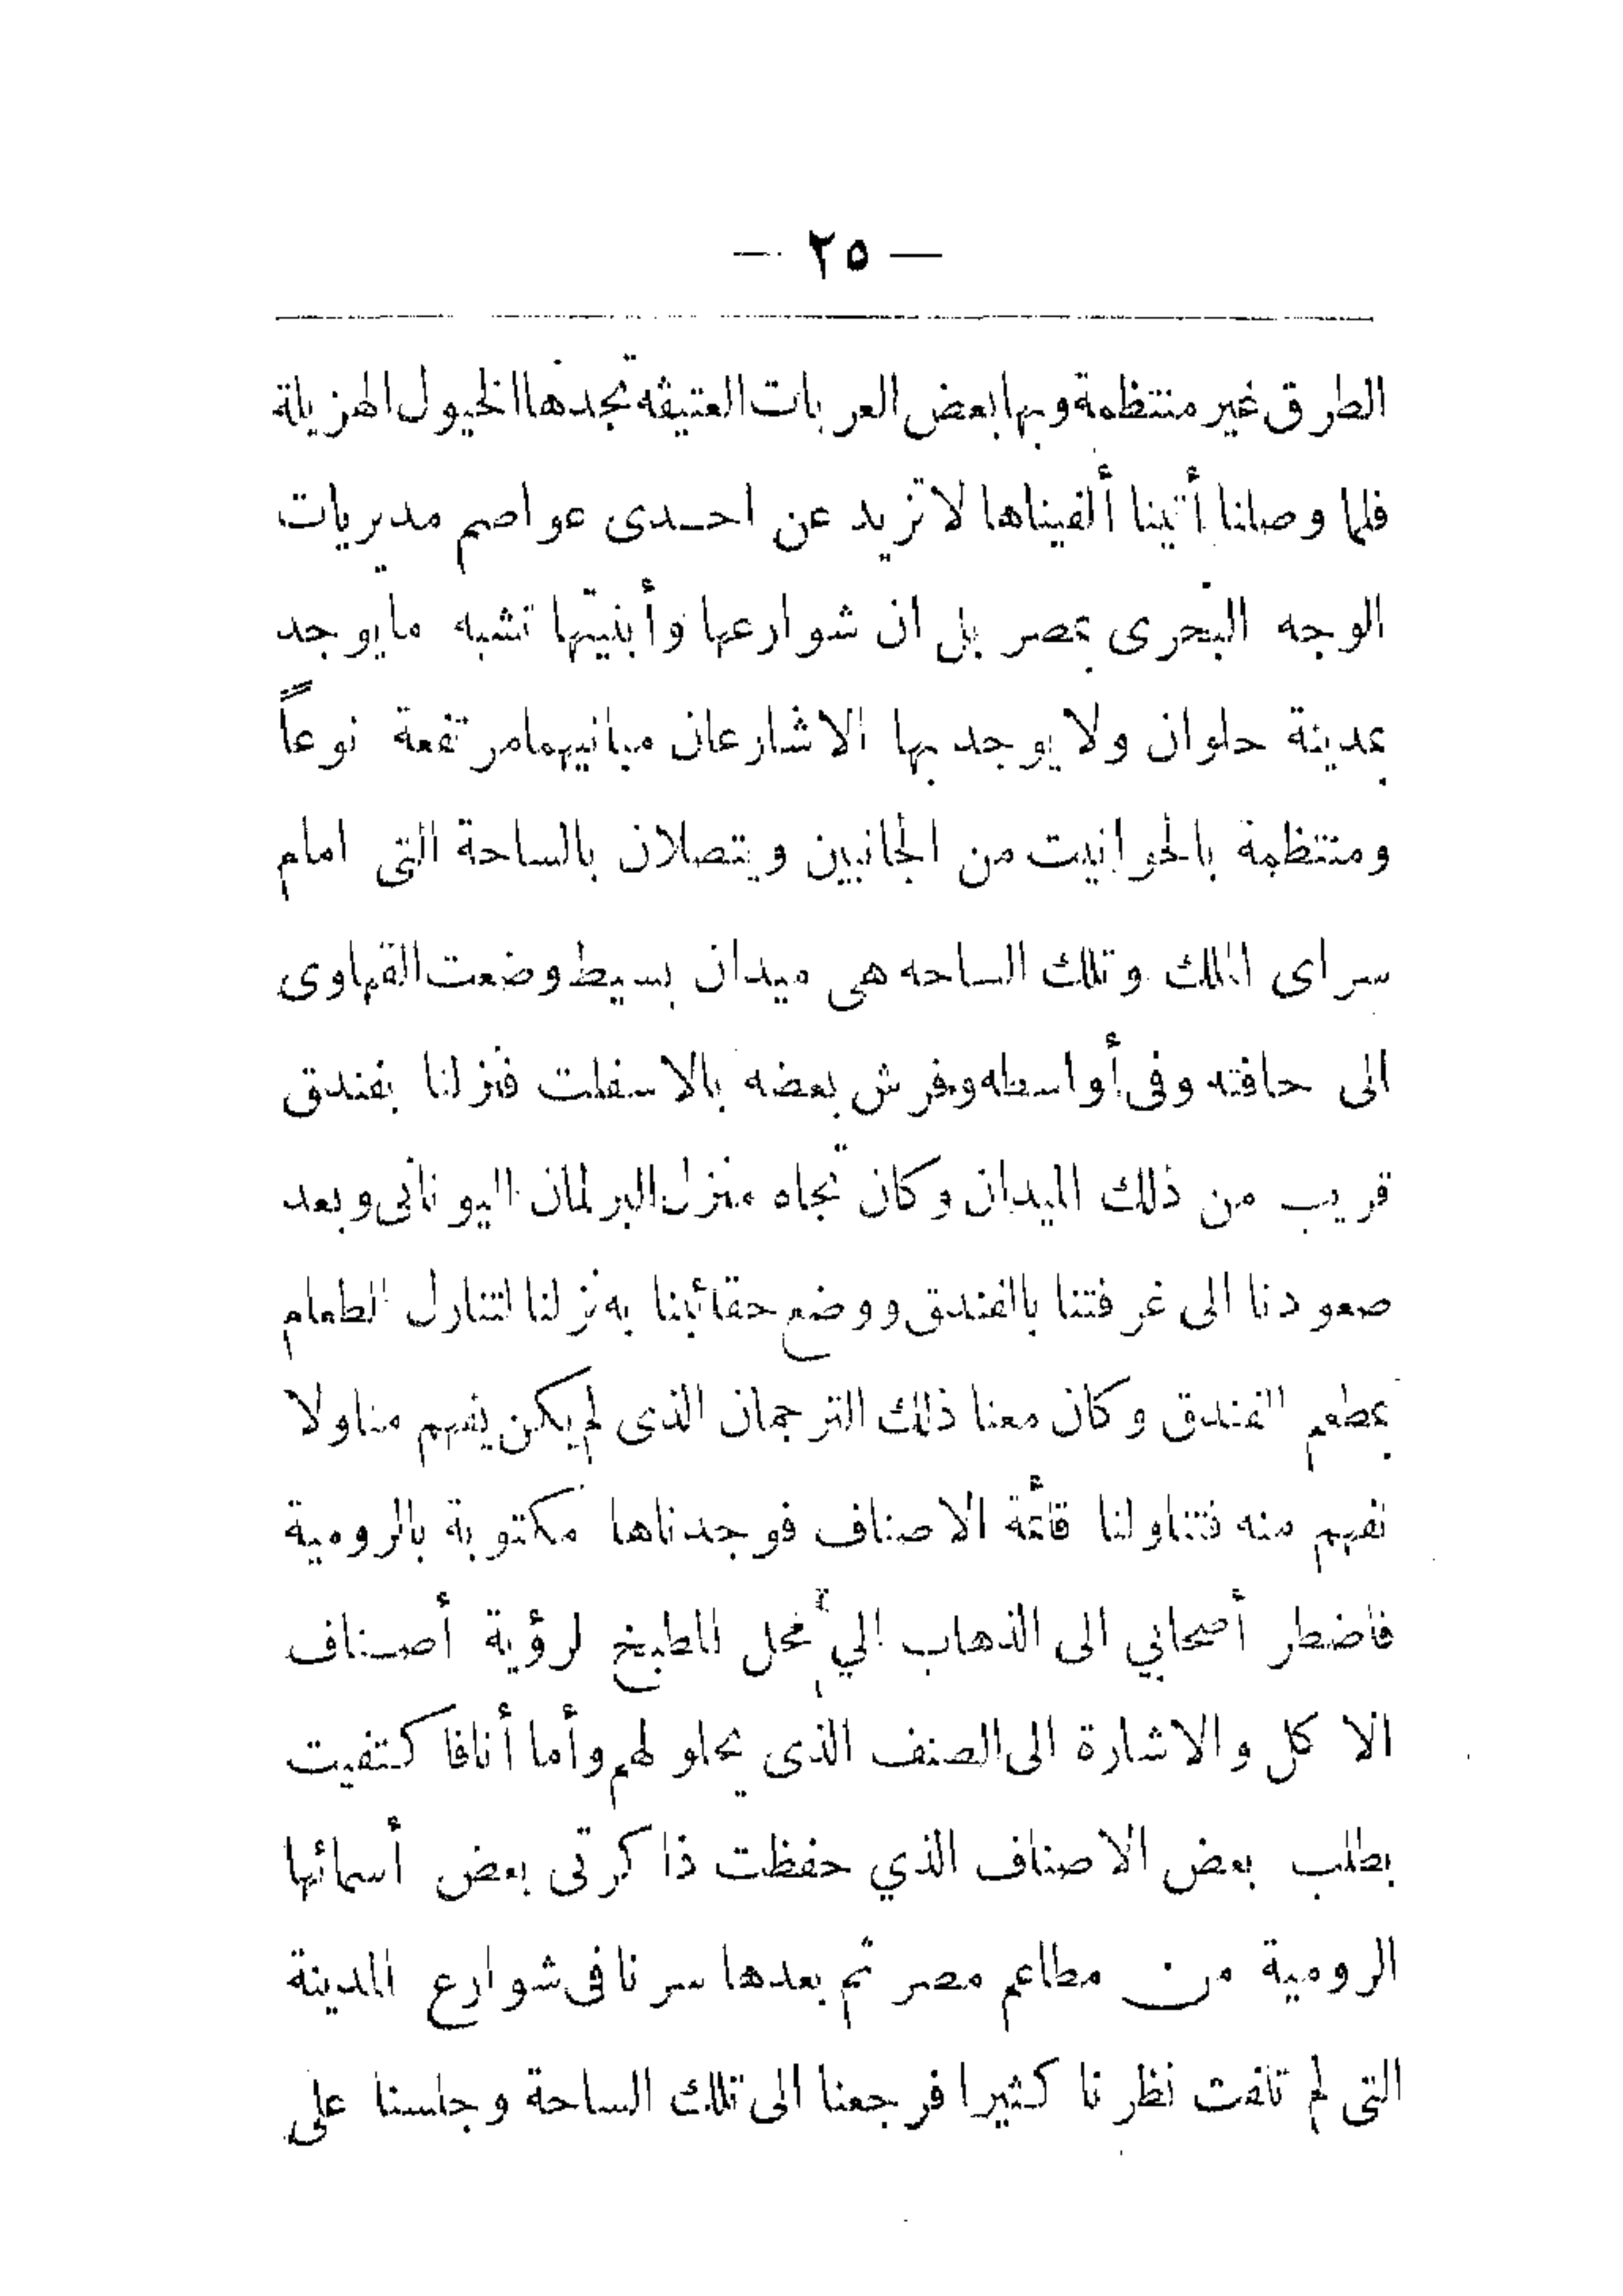 — ٢٥ —
الطرق غير منتظمة وبها بعض العربات العتيقه تجدها الخيول الهزيلة
فلما وصلنا أتينا ألفيناها لا تزيد عن احــدى عواصم مديريات
الوجه البحرى بمصر بل ان شوارعها وأبنيتها تشبه مايوجد
بمدينة حلوان ولا يوجد بها الا شارعان مبانيهما مرتفعة نوعاً
ومنتظمة بالحوانيت من الجانبين ويتصلان بالساحة التى امام
سراى الملك وتلك الساحه هى ميدان بسيط وضعت القهاوى
الى حافته وفى أواسطه وفرش بعضه بالاسفلت فنزلنا بفندق
قريب من ذلك الميدان وكان تجاه منزل البرلمان اليونانى وبعد
صعودنا الى غرفتنا بالفندق ووضع حقائبنا به نزلنا لتناول الطعام
بمطعم الفندق وكان معنا ذلك الترجمان الذى لم يكن يفهم منا ولا
نفهم منه فتناولنا قائمة الاصناف فوجدناها مكتوبة بالرومية
فاضطر أصحابي الى الذهاب الي محل المطبخ لرؤية أصــناف
الاكل والاشارة الى الصنف الذى يحلو لهم وأما أنا فاكتفيت
بطلب بعض الاصناف الذي حفظت ذاكرتى بعض أسمائها
الرومية من مطاعم مصر ثم بعدها سرنا فى شوارع المدينة
التى لم تلفت نظرنا كثيرا فرجعنا الى تلك الساحة وجلسنا على